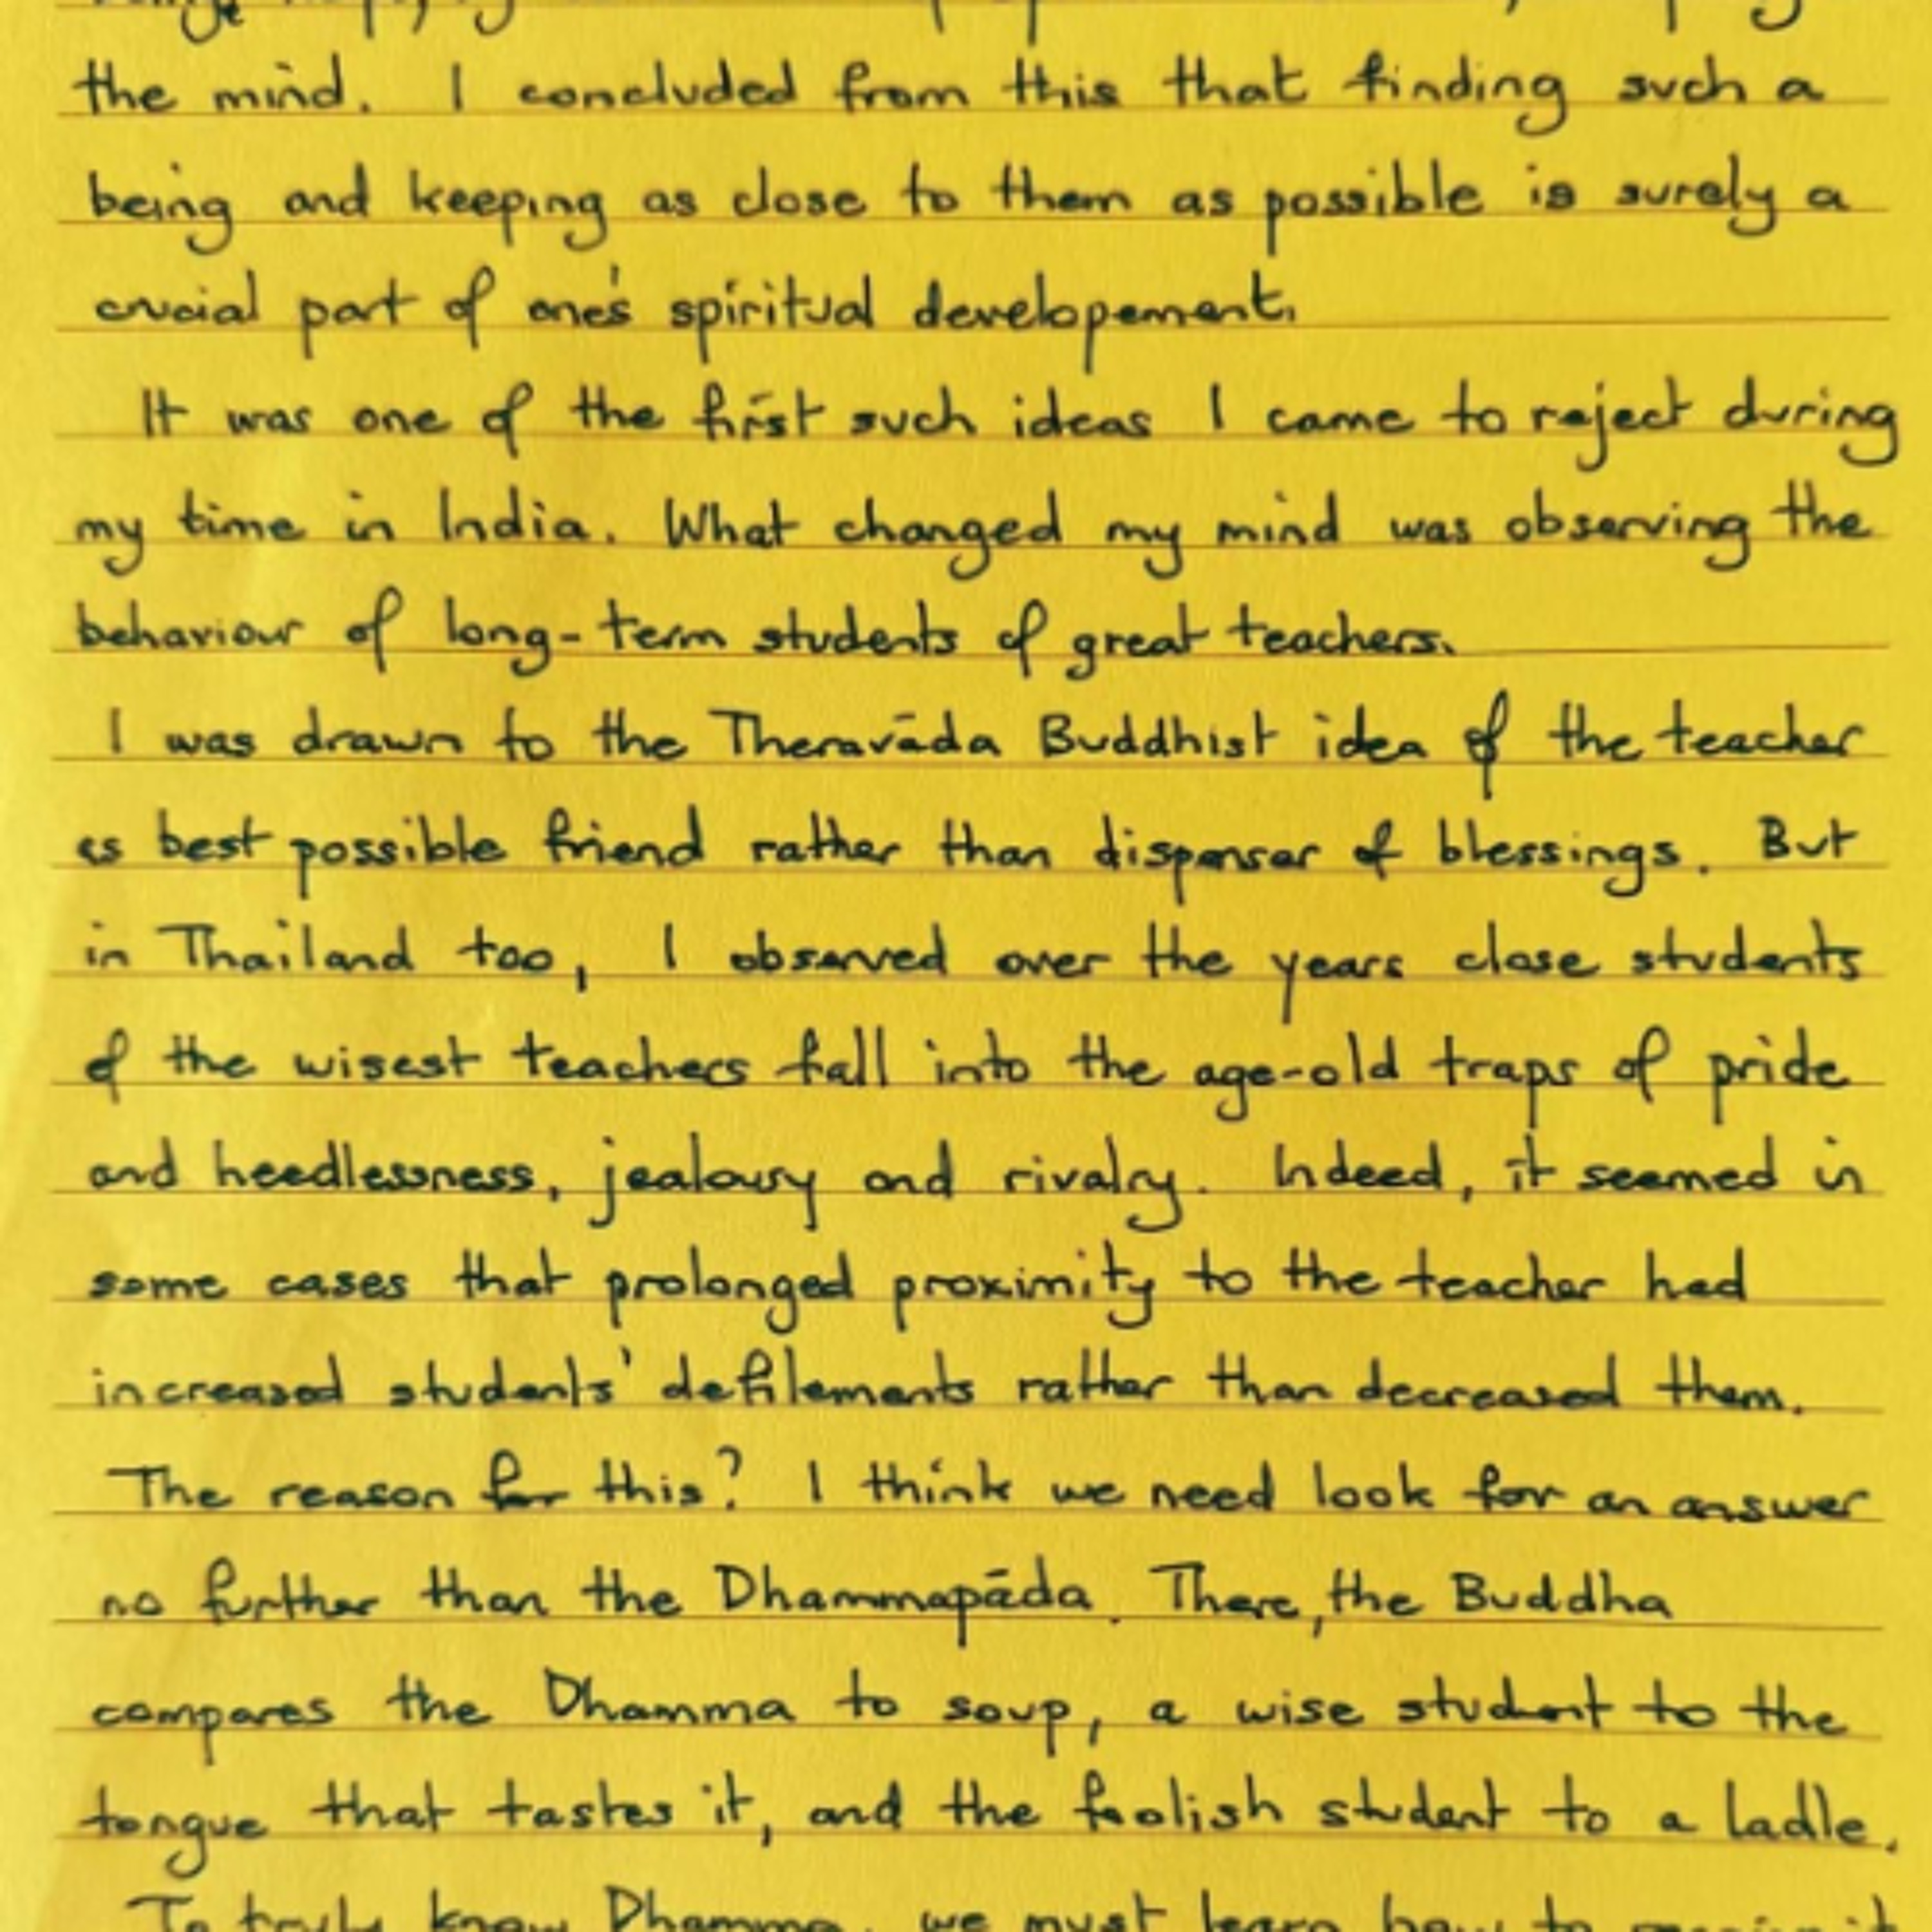 the mind. I concluded from this that finding such a
being and keeping as close to them as possible is surely a
crucial part of one's spiritual developement.
It was one of the first such ideas I came to reject during
my time in India. What changed my mind was observing the
behaviour of long-term students of great teachers.
I was drawn to the Theravāda Buddhist idea of the teacher
as best possible friend rather than dispenser of blessings. But
in Thailand too, I observed over the years close students
of the wisest teachers fall into the age-old traps of pride
and heedlessness, jealousy and rivalry. Indeed, it seemed in
some cases that prolonged proximity to the teacher had
increased students' defilements rather than decreased them.
The reason for this? I think we need look for an answer
no further than the Dhammapāda. There, the Buddha
compares the Dhamma to soup, a wise student to the
tongue that tastes it, and the foolish student to a ladle.
To truly know Dhamma, we must learn how to